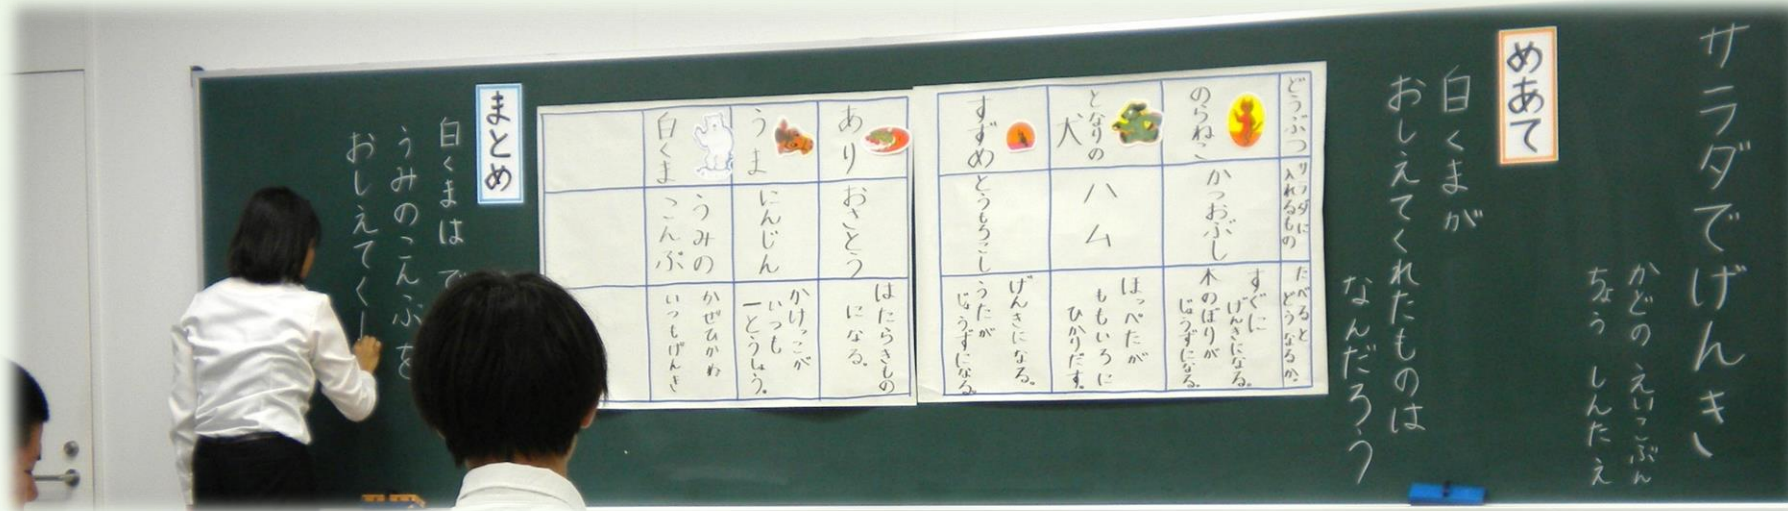 サラダでげんき
かどの えいこぶん
ちょう しんたえ
めあて
白くまが
おしえてくれたものは
なんだろう
どうぶつ
サラダに
入れるもの
たべると
どうなるか
のらねこ
かつおぶし
すぐに
げんきになる。
木のぼりが
じょうずになる。
となりの
犬
ハム
ほっぺたが
ももいろに
ひかりだす。
すずめ
とうもろこし
げんきになる。
うたが
じょうずになる。
あり
おさとう
はたらきもの
になる。
うま
にんじん
かけっこが
いつも
一とうしょう。
白くま
うみの
こんぶ
かぜひかぬ
いつもげんき
まとめ
白くまは で
うみのこんぶを
おしえてく